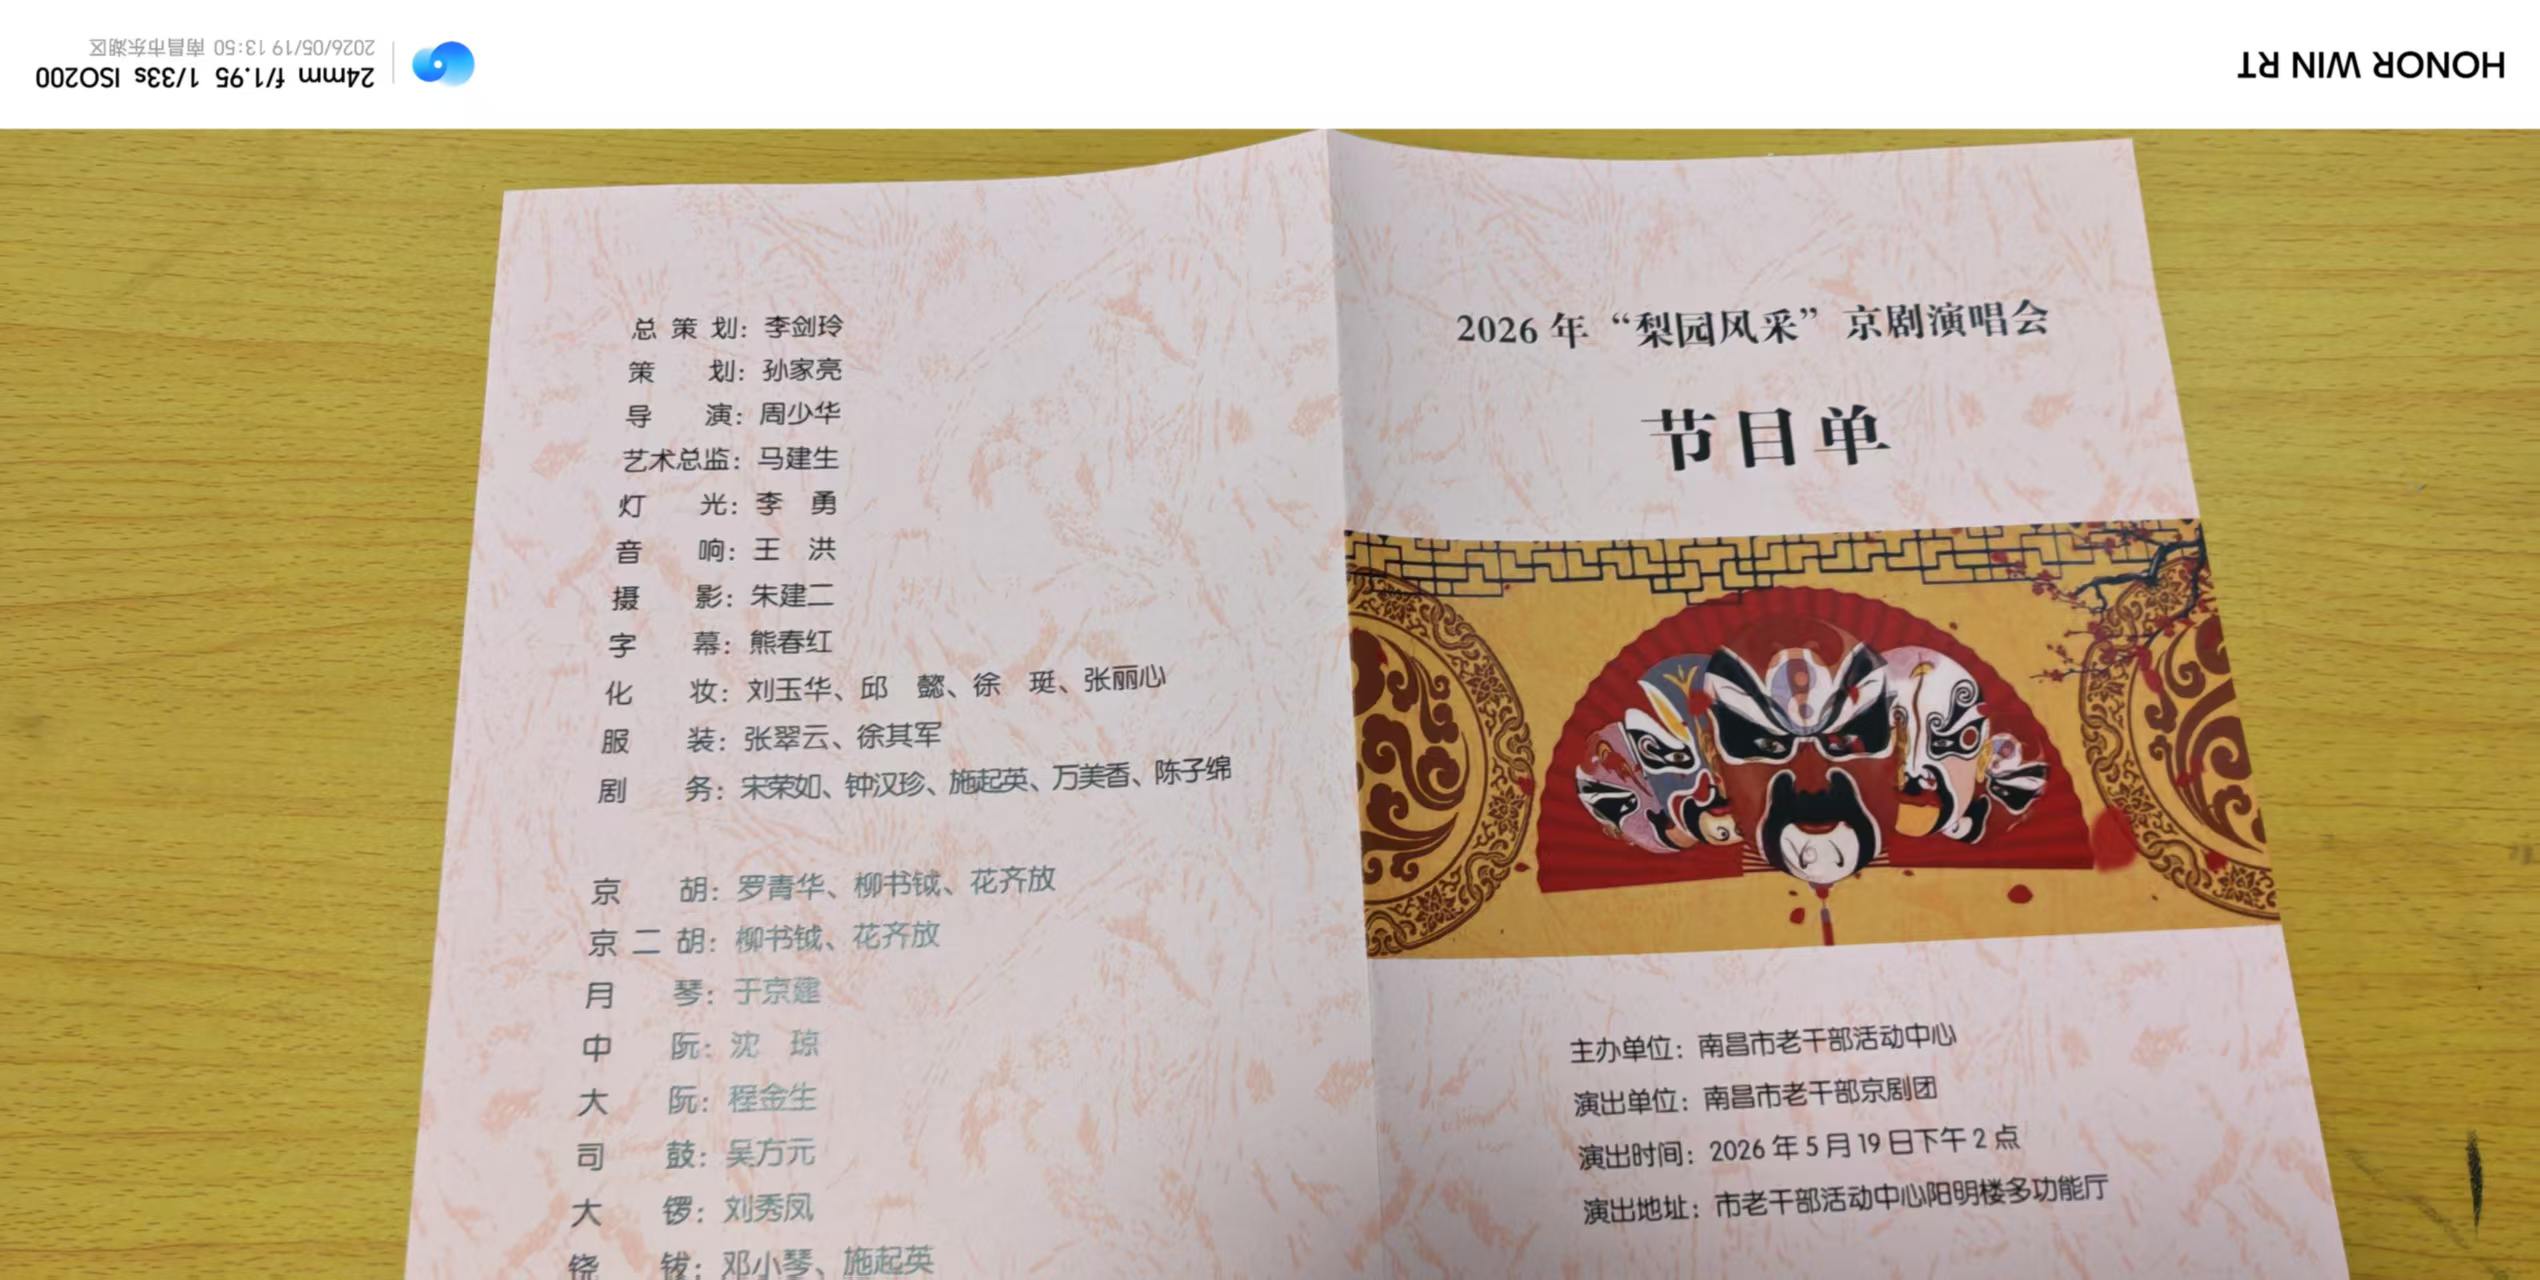 HONOR WIN RT
24mm f/1.95 1/33s ISO200
2026/05/19 13:50 南昌市东湖区
总策划：李剑玲
策划：孙家亮
导演：周少华
艺术总监：马建生
灯光：李 勇
音响：王 洪
摄影：朱建二
字幕：熊春红
化妆：刘玉华、邱 懿、徐 珽、张丽心
服装：张翠云、徐其军
剧务：宋荣如、钟汉珍、施起英、万美香、陈子绵
京胡：罗青华、柳书钺、花齐放
京二胡：柳书钺、花齐放
月琴：于京建
中阮：沈 琼
大阮：程金生
司鼓：吴方元
大锣：刘秀凤
铙钹：邓小琴、施起英
2026 年“梨园风采”京剧演唱会
节目单
主办单位：南昌市老干部活动中心
演出单位：南昌市老干部京剧团
演出时间：2026 年 5 月 19 日下午 2 点
演出地址：市老干部活动中心阳明楼多功能厅